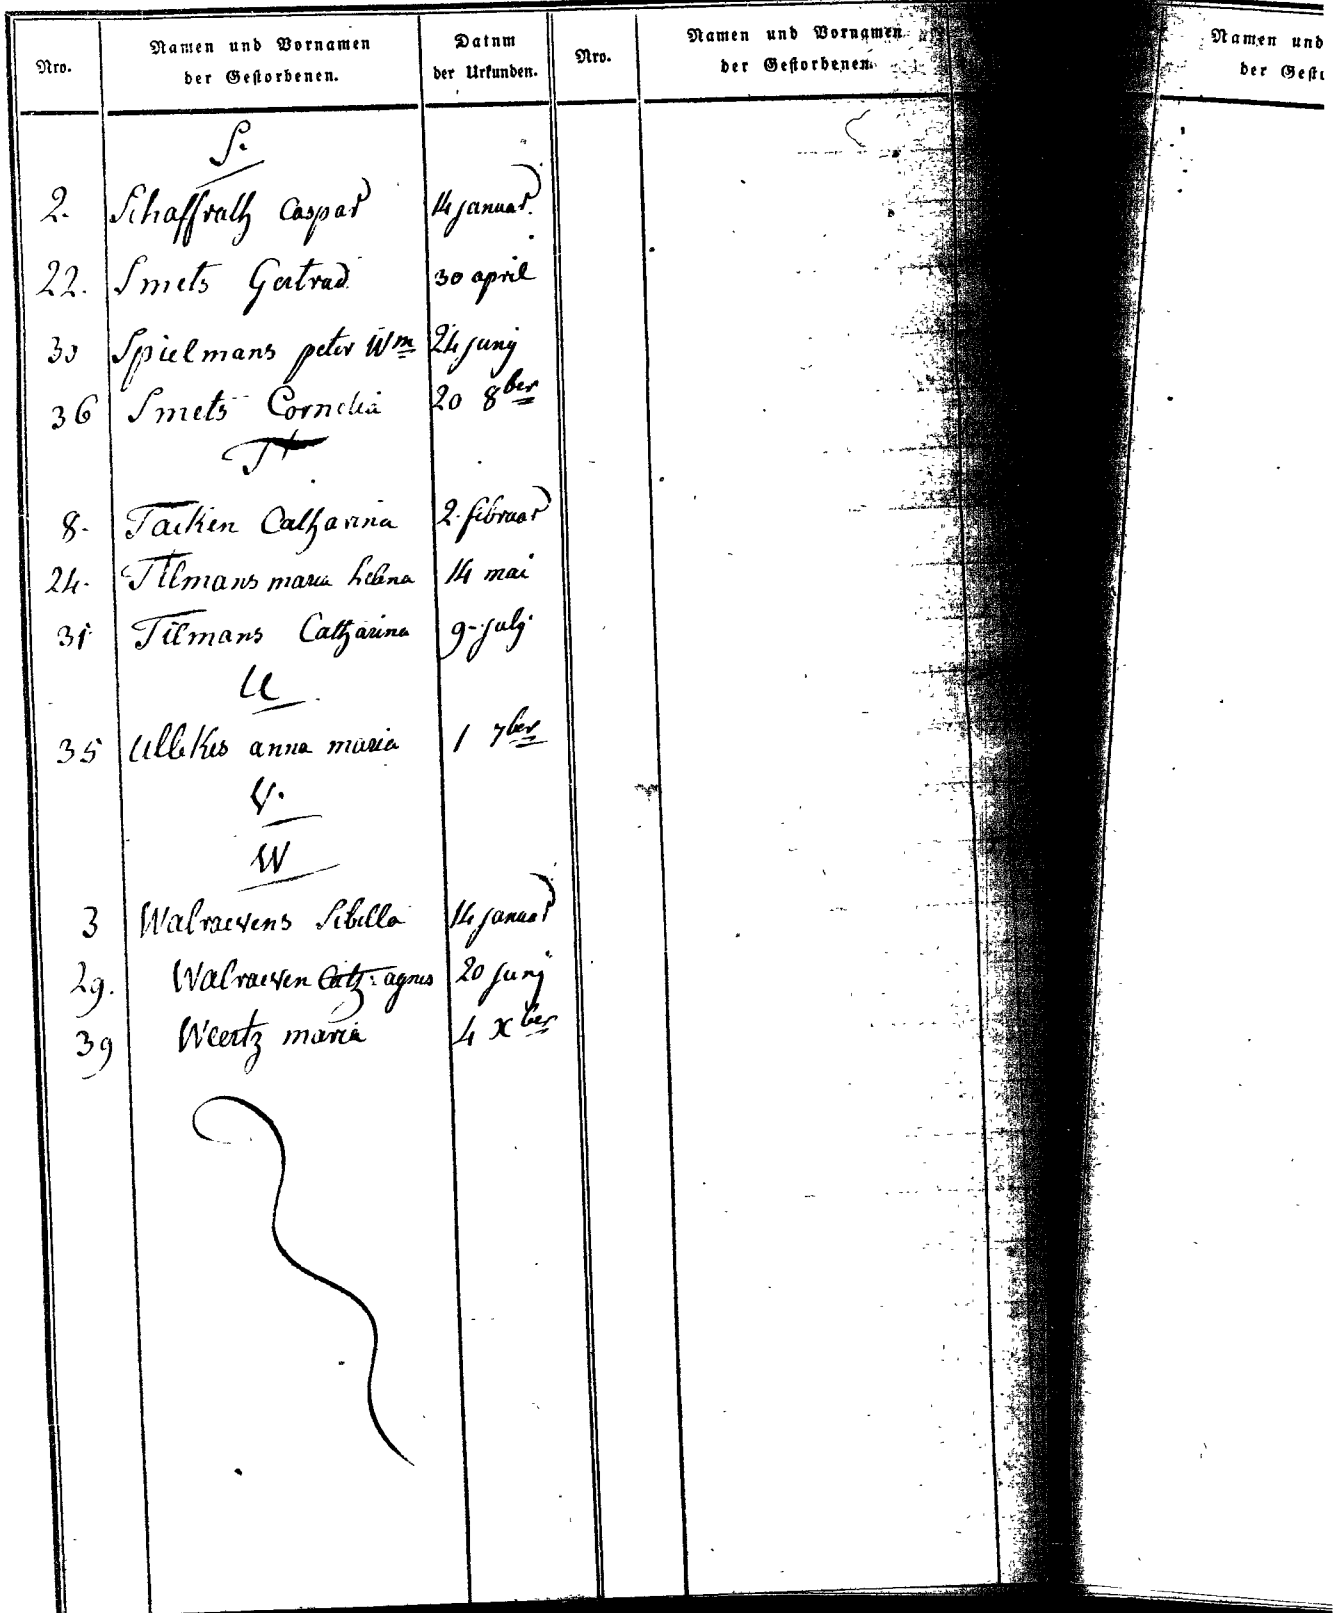 Nro. Namen und Vornamen der Gestorbenen. Datum der Urkunden.
Nro. Namen und Vornamen der Gestorbenen.
Namen und
der Gest
S.
2. Schaffrath Caspar 14 januar.
22. Smets Gertrud 30 april
30 Spielmans peter Wm 24 junij
36 Smets Cornelia 20 8ber
T
8. Tacken Catharina 2. februar
24. Tilmans maria helena 14 mai
31 Tilmans Catharina 9. julij
U
35 Ullekes anna maria 1 7ber
V.
W
3 Walraevens Sibilla 14 januar
29. Walraeven Cath: agnes 20 junij
39 Weertz maria 4 Xber